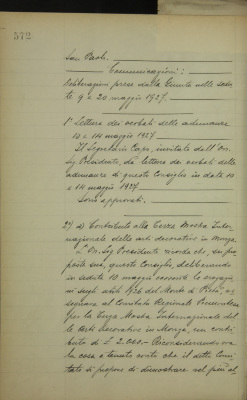 572
San Paolo.
Comunicazioni:
Deliberazioni prese dalla Giunta nelle sedute
9 e 20 maggio 1927.
1° Lettura dei verbali delle adunanze
10 e 14 maggio 1927
Il Segretario Capo, invitato dall'On.
Sig. Presidente, dà lettura dei verbali delle
adunanze di questo Consiglio in data 10
e 14 maggio 1927
Sono approvati.
2°) Contributo alla Terza Mostra Inter-
nazionale delle arti decorative in Monza.
L'On. Sig. Presidente ricorda che,
questo Consiglio, deliberando
in seduta 10 maggio
utili 1926 del Monte di Pietà,
segnare al Comitato Regionale Piemontese
per la Terza Mostra Internazionale del-
le Arti Decorative in Monza, un contri-
buto di £ 2.000.- Riconsiderando ora
la cosa e tenuto conto che il detto Comi-
tato si propone di dimostrare nel